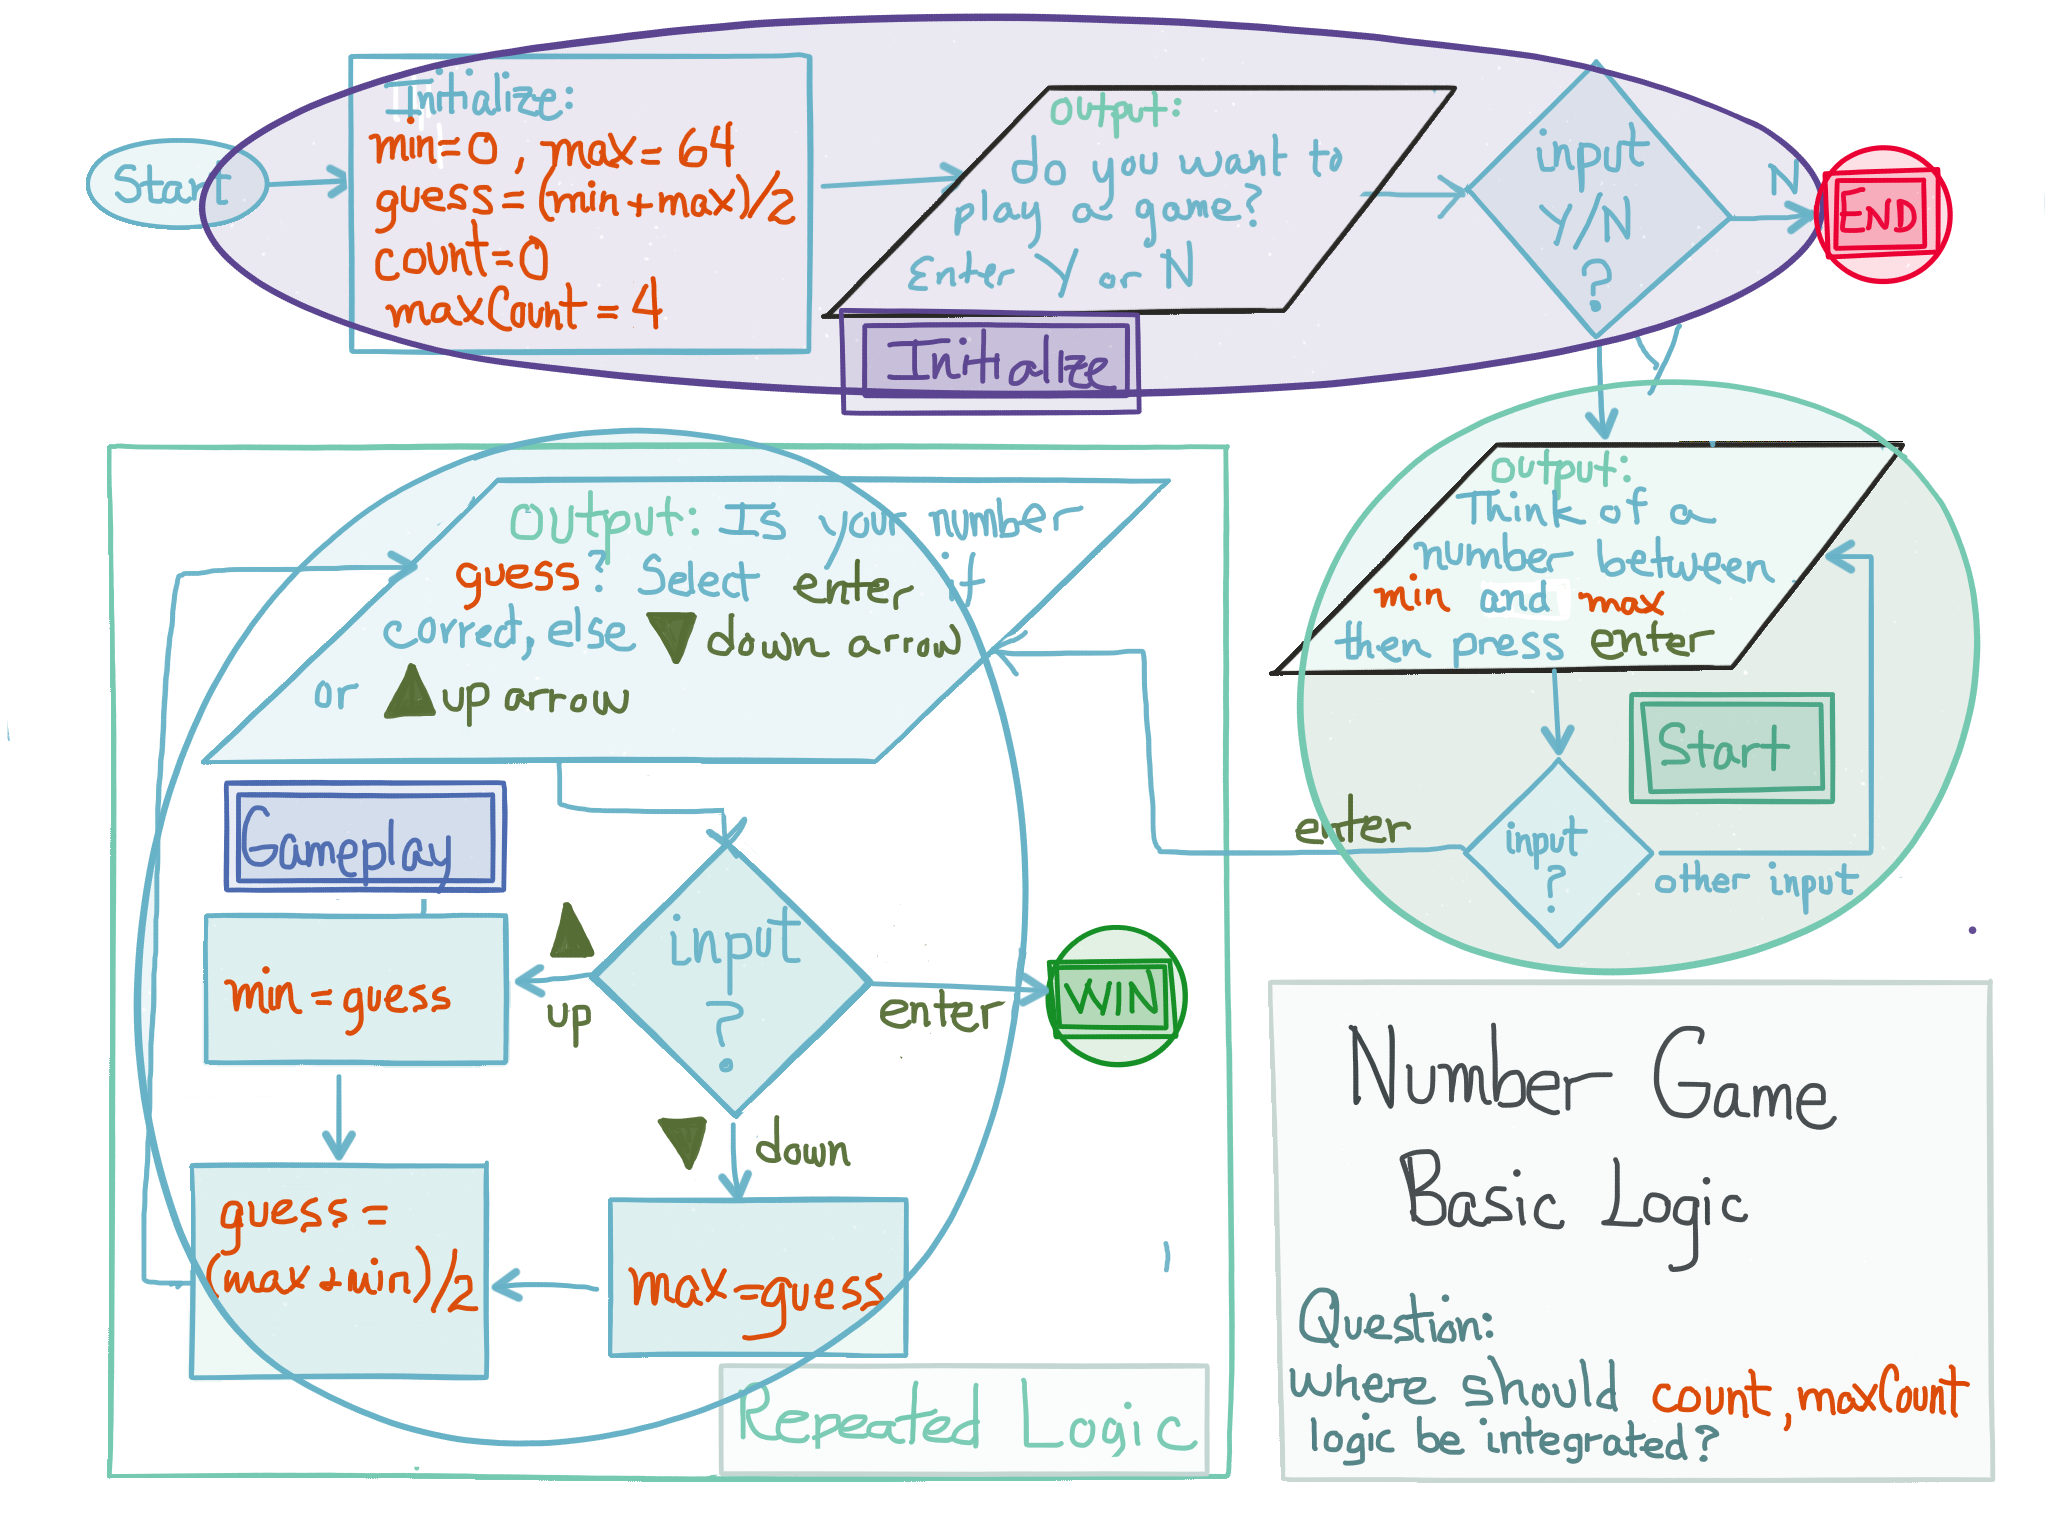 Start
Initialize:
min=0, max=64
guess=(min+max)/2
count=0
maxCount=4
output:
do you want to
play a game?
Enter Y or N
input
Y/N
?
N
END
Initialize
Y
output:
Think of a
number between
min and max
then press enter
Start
input
?
enter
other input
Output: Is your number
guess? Select enter if
correct, else ▼ down arrow
or ▲ up arrow
Gameplay
input
?
▲
up
enter
WIN
▼ down
min=guess
guess=
(max+min)/2
max=guess
Repeated Logic
Number Game
Basic Logic
Question:
where should count, maxCount
logic be integrated?